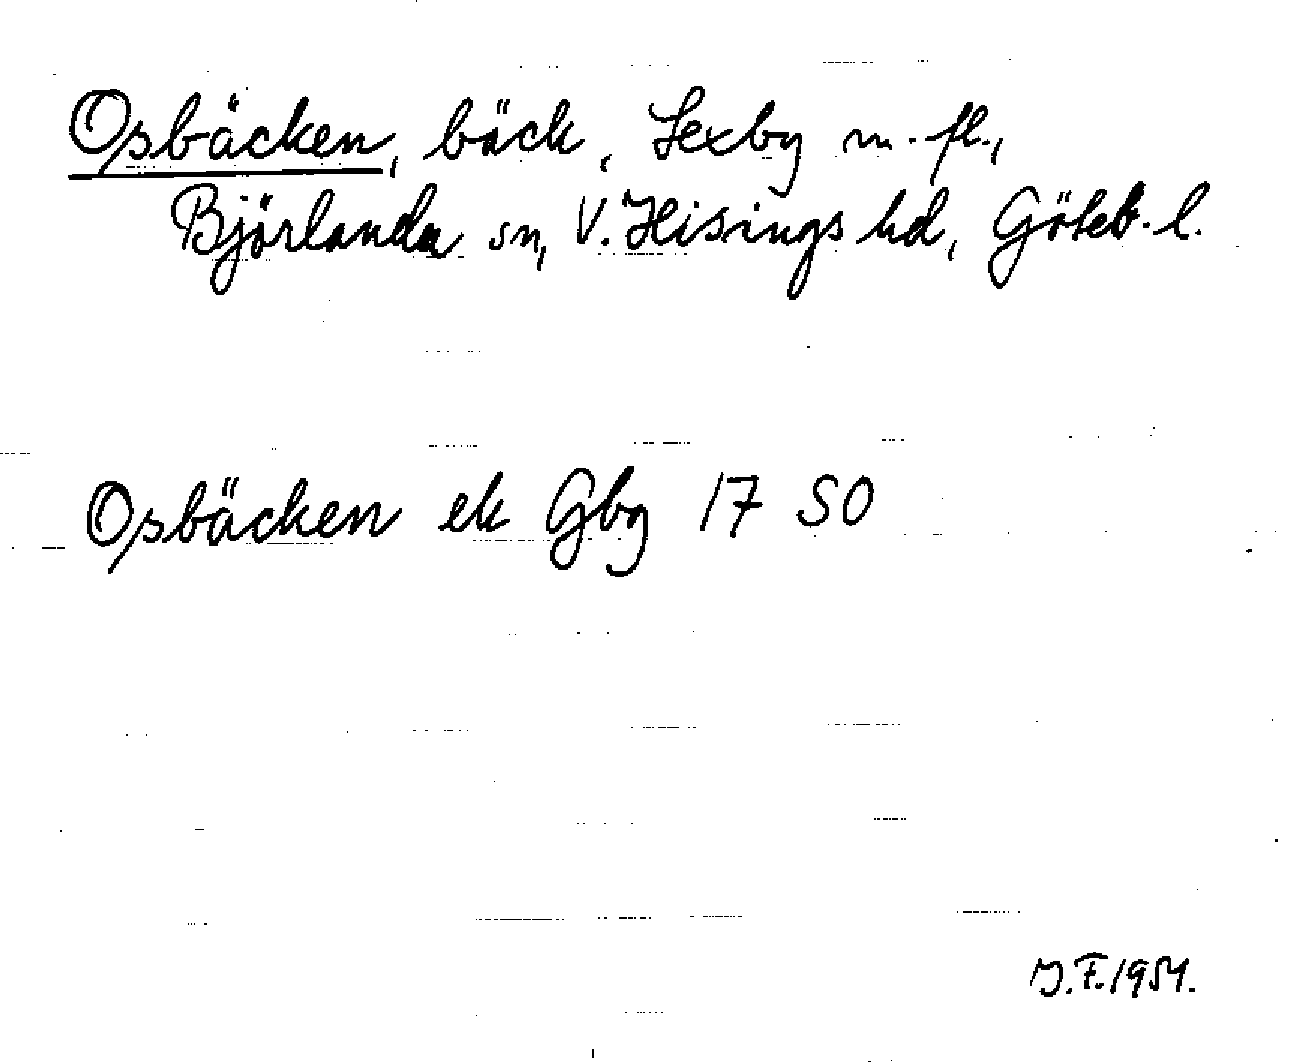 Opsbäcken, bäck, Sexby m.fl.,
Björlanda sn, V. Hisings hd, Göteb. l.
Opsbäcken ek Gbg 17 SO
J.F. 1951.